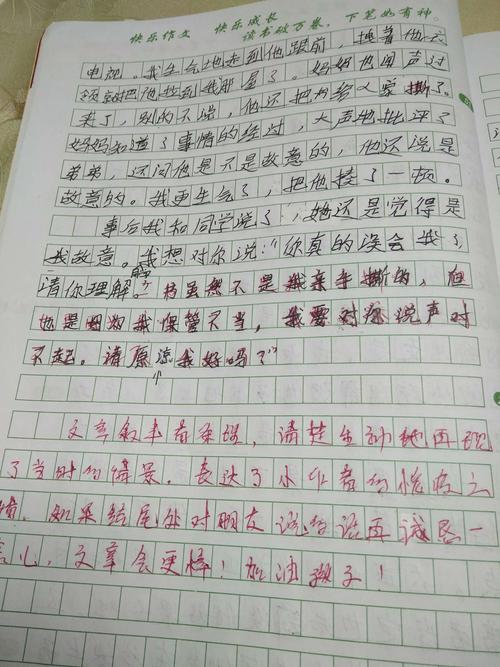 快乐作文 快乐成长
读书破万卷，下笔如有神。
电视。我生气地走到他跟前，揪着他衣
领就把他拉到我那屋了。妈妈也闻声过
来了，别的不说，他还把我爹义掌撕了。
妈妈知道了事情的经过，大声地批评了
弟弟，还问他是不是故意的，他还说是
故意的。我更生气了，把他揍了一顿。
事后我和同学说了，她还是觉得是
我故意。我想对你说："你真的误会我了，
请你理解。书虽然不是我亲手撕的，但
也是因为我保管不当，我要对你说声对
不起。请原谅我好吗？"
文章叙事有条理，清楚生动地再现
了当时的情景。表达了小作者的愧疚之
情。如果结尾处对朋友说的话再诚恳一
些心，文章会更棒！加油孩子！